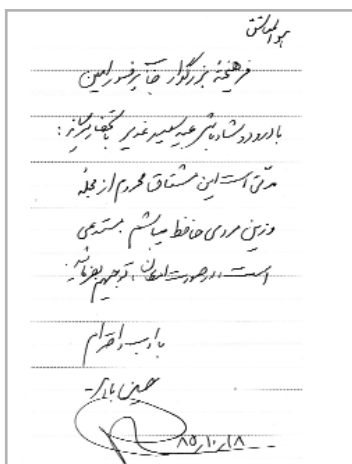 هوالعاشق
فرهیخته بزرگوار جناب پرفسور امین
با درود و شادباش عید سعید غدیر
مدتی است این مشتاق محروم از مجله
وزین مردمی حافظ میباشم مستدعی
است، در صورت امکان، توجهی بفرمائید.
با ادب و احترام
حسین
۸۵/۱۰/۱۸